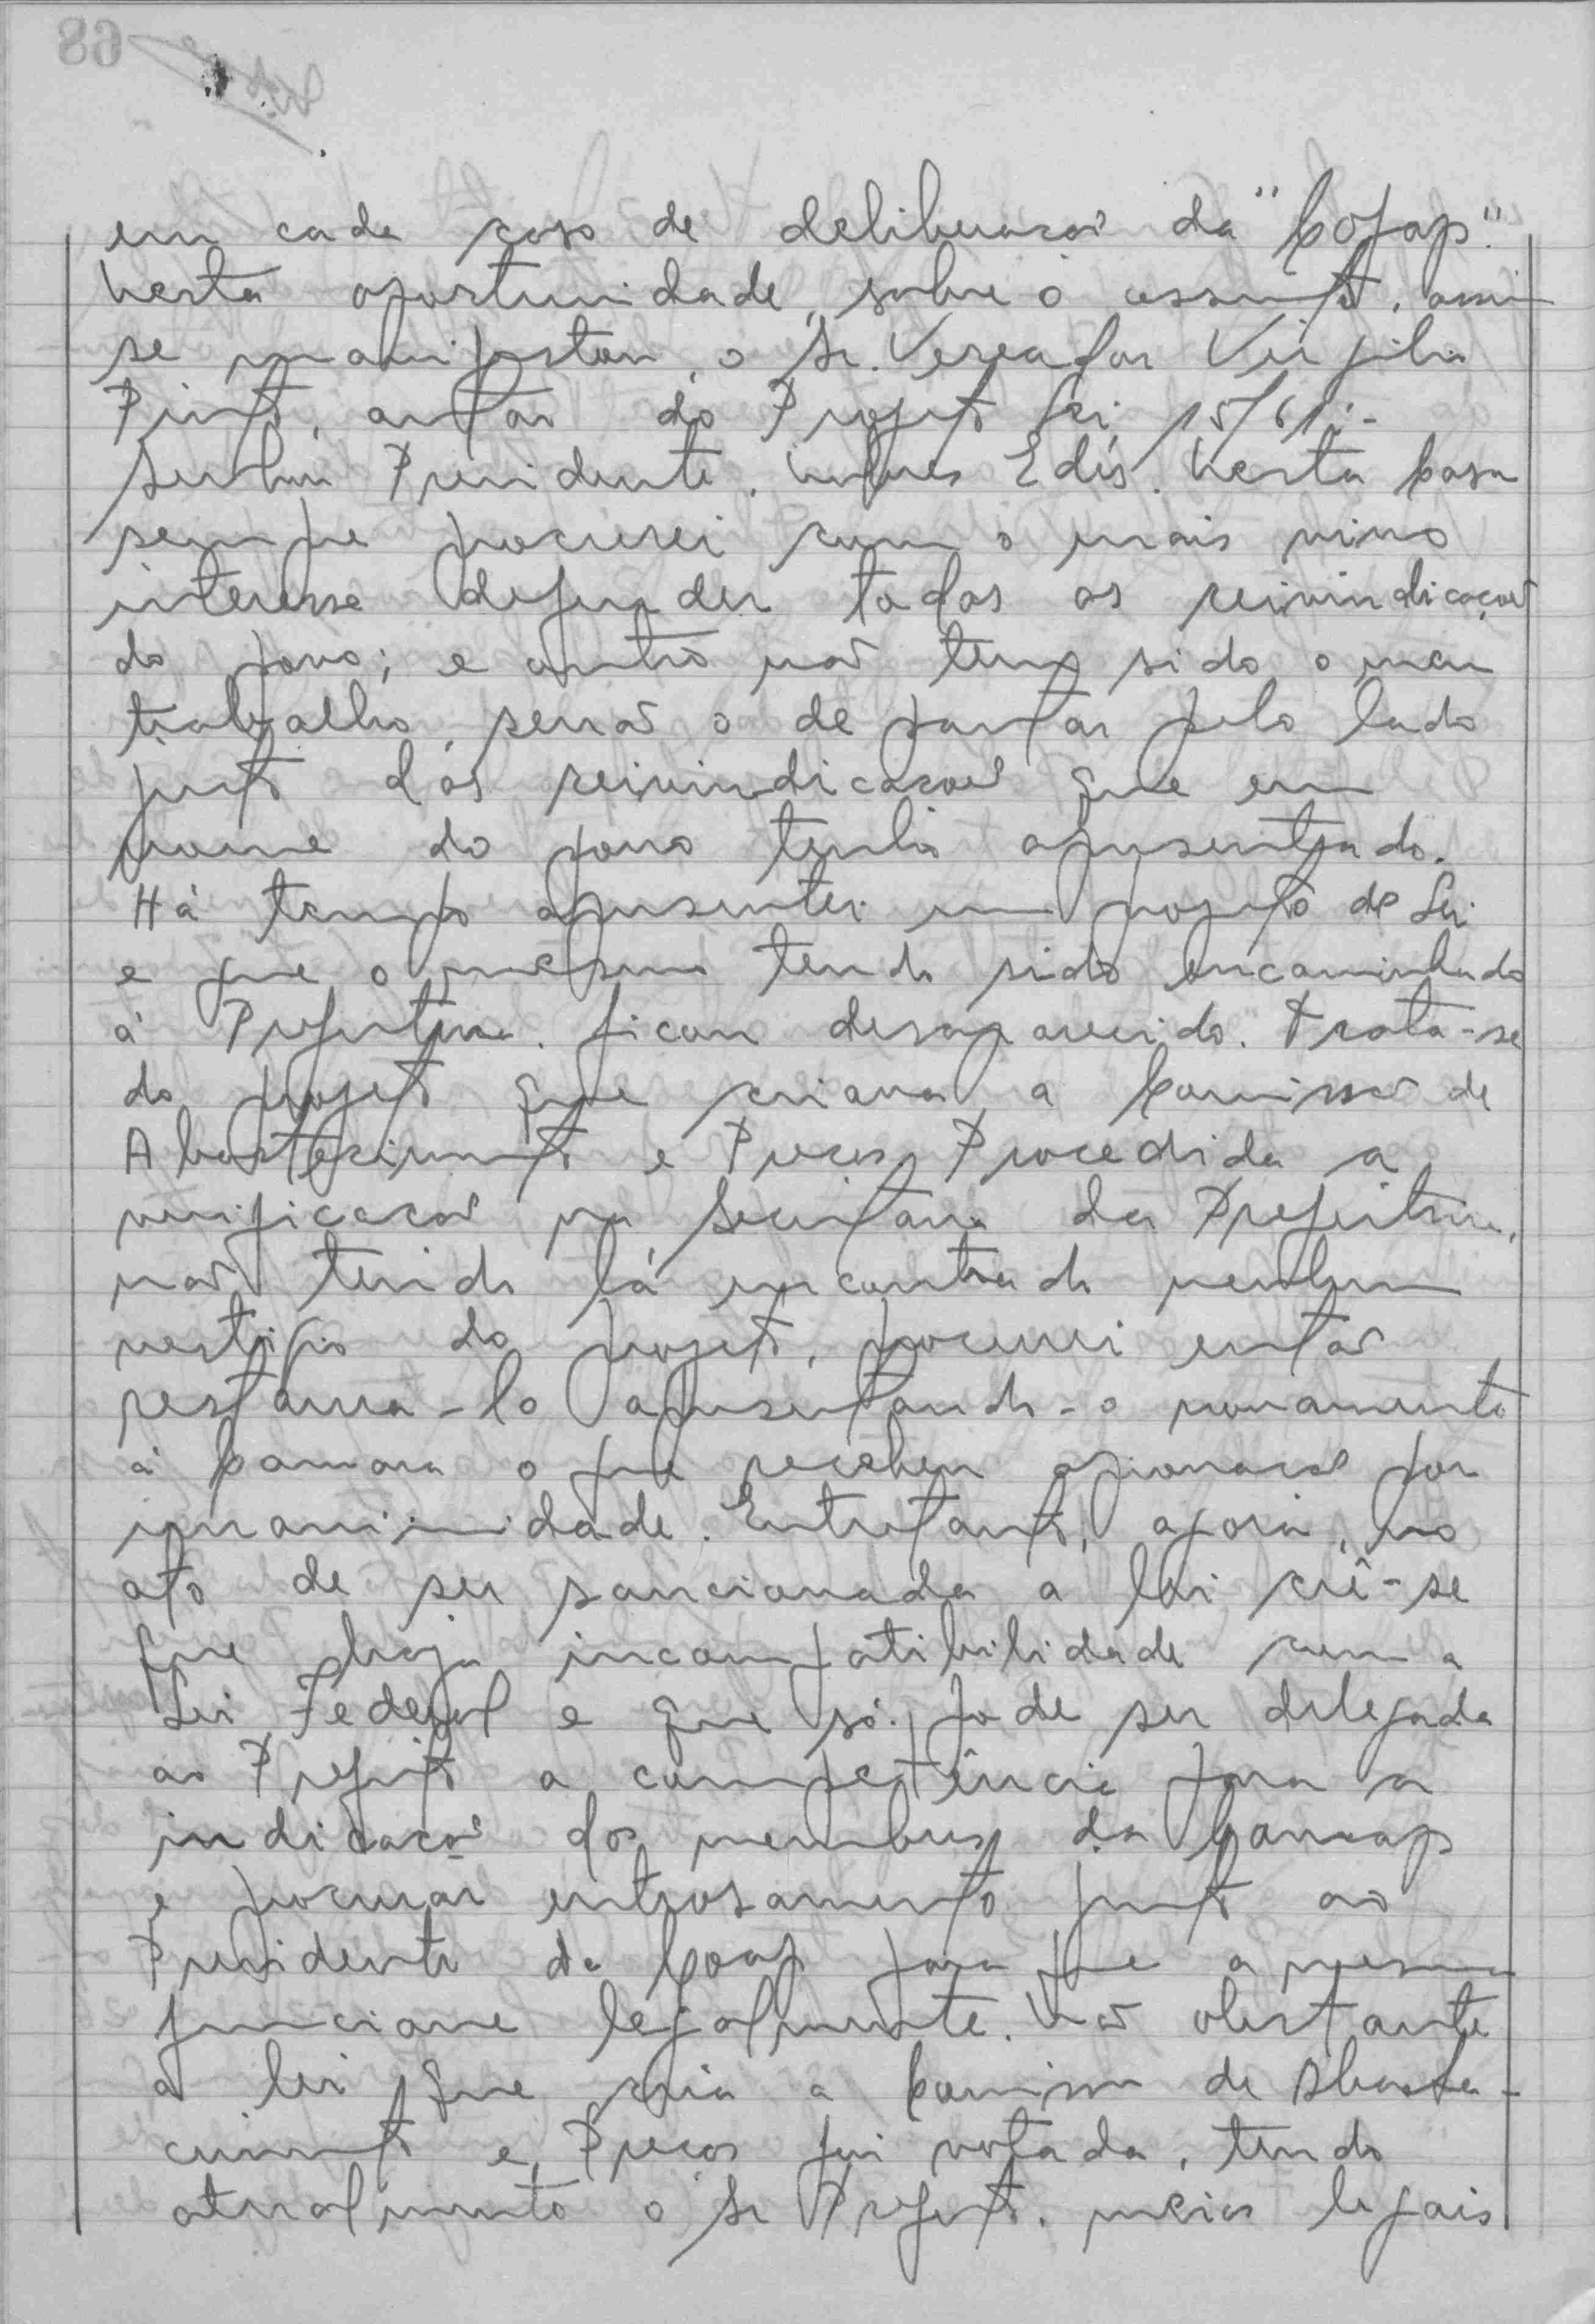 em cada caso de deliberação da "Cofap".
Nesta oportunidade, sobre o assunto, assim
se manifestou, o Sr. Vereador Virgilio
Pinto, autor do Projeto Lei 15/61:-
Senhor Presidente. Nobres Edís. Nesta Casa
sempre procurei com o mais vivo
interesse defender todas as reivindicações
do povo; e outro não tem sido o meu
trabalho, senão o de pautar pelo lado
justo das reivindicações que em
nome do povo tenho apresentado.
Há tempo apresentei um projeto de Lei
e que o mesmo tendo sido encaminhado
á Prefeitura. ficou desaparecido. Trata-se
do projeto que criava a Comissão de
Abastecimento e Preços. Procedida a
verificação na Secretaria da Prefeitura,
não tendo lá encontrado nenhum
vestigio do projeto, procurei então
restaura-lo apresentando-o novamente
á Camara o que recebeu aprovação por
unanimidade. Entretanto, agora, no
ato de ser sancionada a lei crê-se
que haja incompatibilidade com a
Lei Federal e que só pode ser delegada
ao Prefeito a competência para a
indicação dos membros da Comap
e procurar entrosamento junto ao
Presidente da Coap para que a mesma
funcione legalmente. Não obstante
a lei que cria a Comissão de Abaste-
cimento e Preços foi votada, tendo
atualmente o Sr Prefeito. meios legais